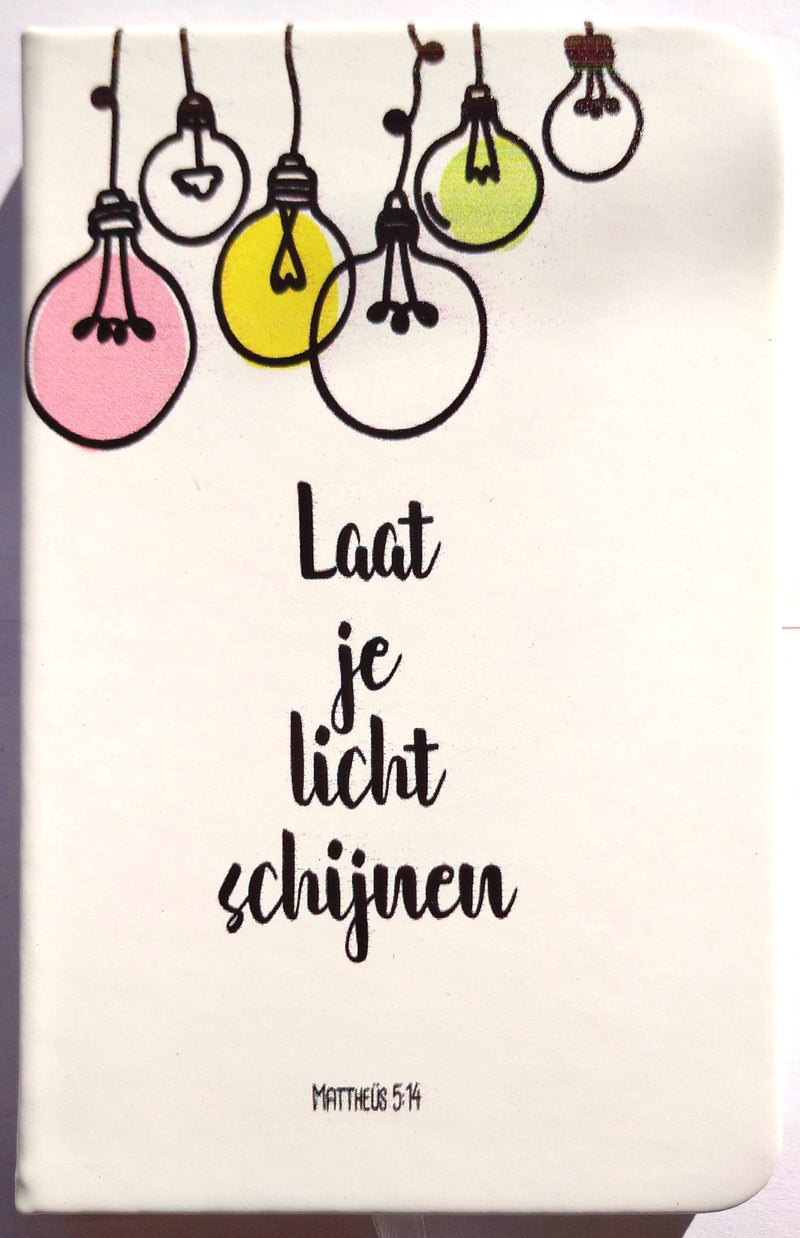 Laat
je
licht
schijnen
MATTHEÜS 5:14